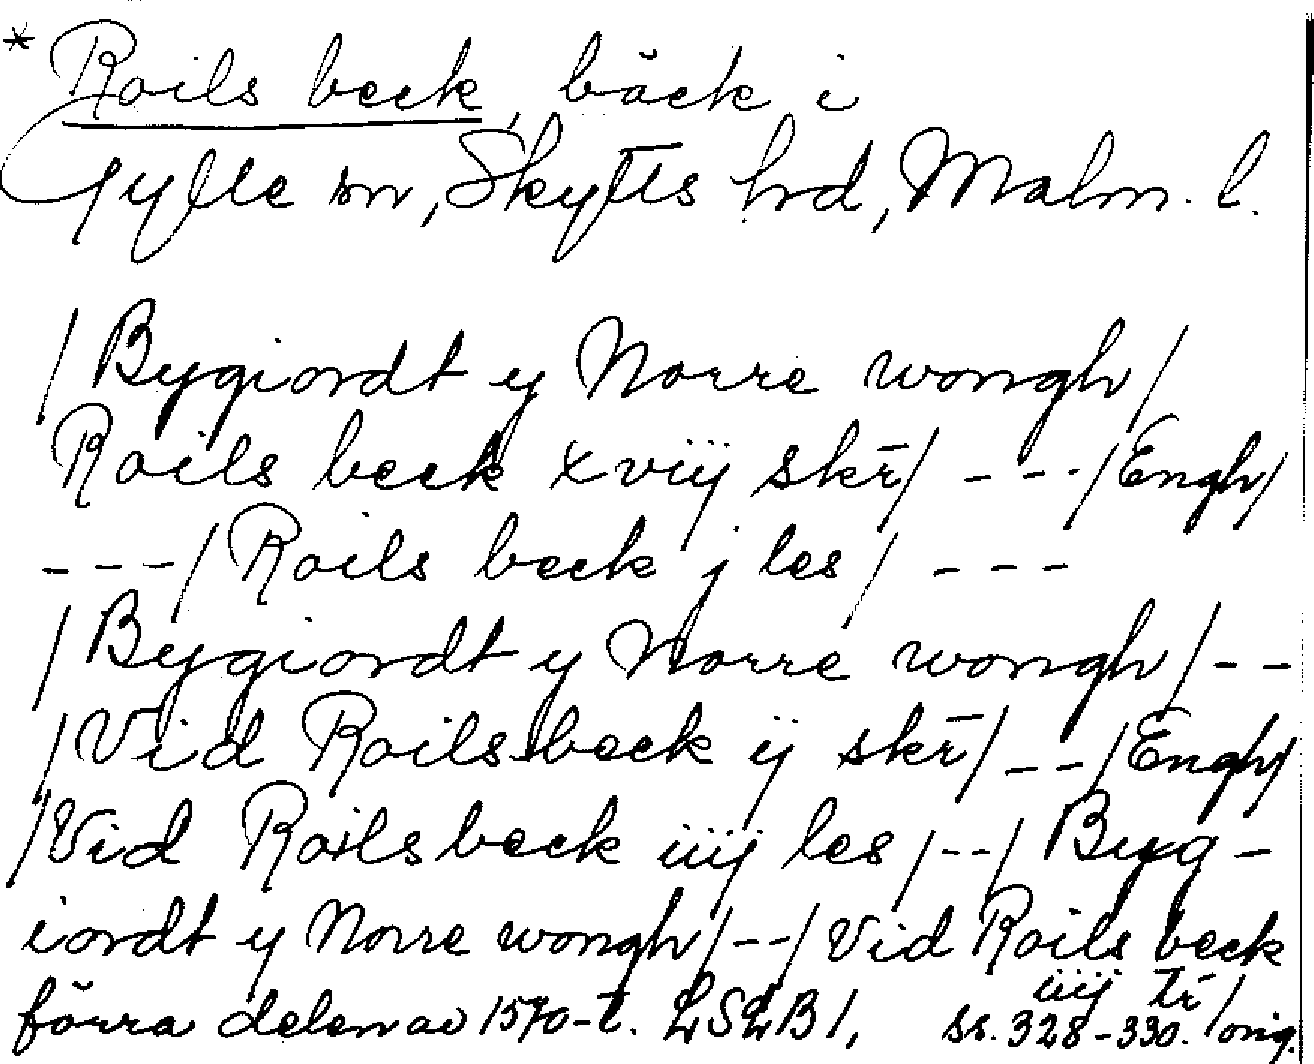 * Roils beck, bäck i
Gylle sn, Skytts hrd, Malm. l.
/Bygiordt y Norre wongh/
Roils beck xvij skr̄/ - - -/Engh/
- - -/Roils beck j les/ - - -
/Bygiordt y Norre wongh/- -
/Vid Roilsbeck ij skr̄/ - -/Engh/
/Vid Roilsbeck iiij les/- -/Byg-
iordt y Norre wongh/- -/Vid Roils beck
iiij tr̄/
förra delen av 1570-t. LSLB 1, ss. 328-330. orig.